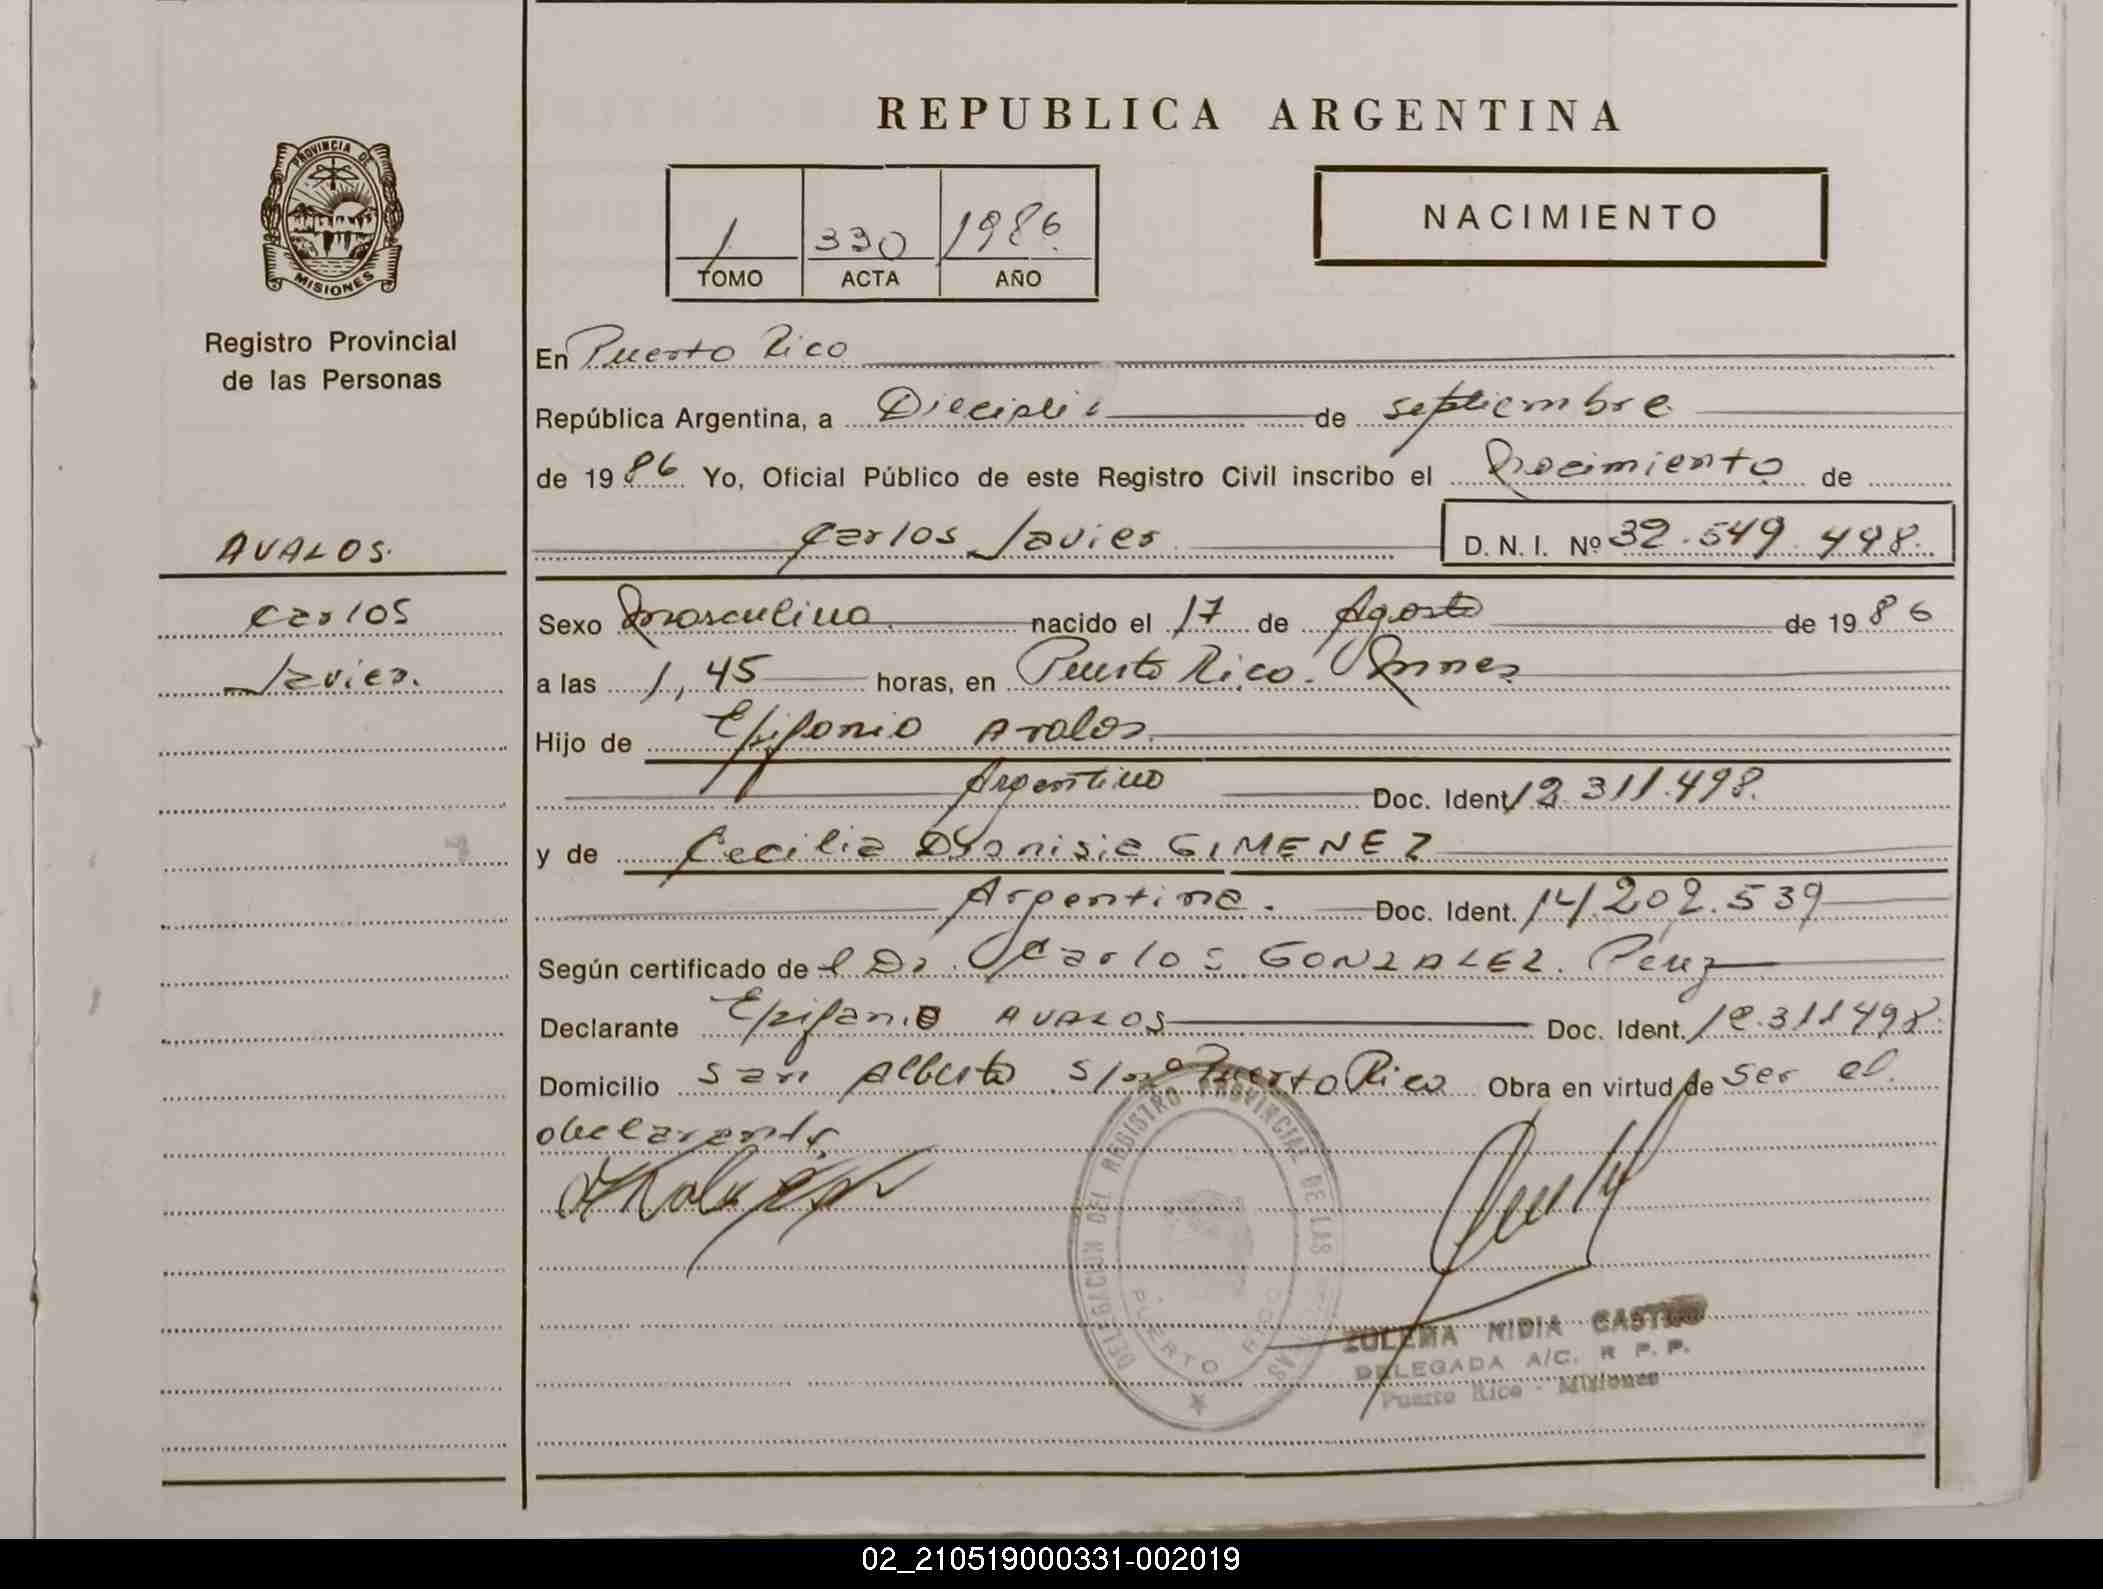 REPUBLICA ARGENTINA
PROVINCIA DE
MISIONES
Registro Provincial
de las Personas
1 330 1986
TOMO ACTA AÑO
NACIMIENTO
En Puerto Rico
República Argentina, a Dieciséis de septiembre
de 1986 Yo, Oficial Público de este Registro Civil inscribo el Nacimiento de
Carlos Javier D. N. I. Nº 32.549.498.
AVALOS.
Carlos
Javier.
Sexo Masculino. nacido el 17 de Agosto de 1986
a las 1,45 horas, en Puerto Rico. Mnes
Hijo de Epifanio Avalos.
Argentino Doc. Ident. 12.311.498.
y de Cecilia Dyonisia GIMENEZ
Argentina. Doc. Ident. 14.202.539
Según certificado del Dr. Carlos GONZALEZ. Perez
Declarante Epifanio AVALOS Doc. Ident. 12.311.498.
Domicilio San Alberto s/nº Puerto Rico Obra en virtud de ser el
declarante.
DELEGACION DEL REGISTRO PROVINCIAL DE LAS
PUERTO RICO
ZULEMA NIDIA CASTRO
DELEGADA A/C. R P. P.
Puerto Rico - Misiones
02_210519000331-002019